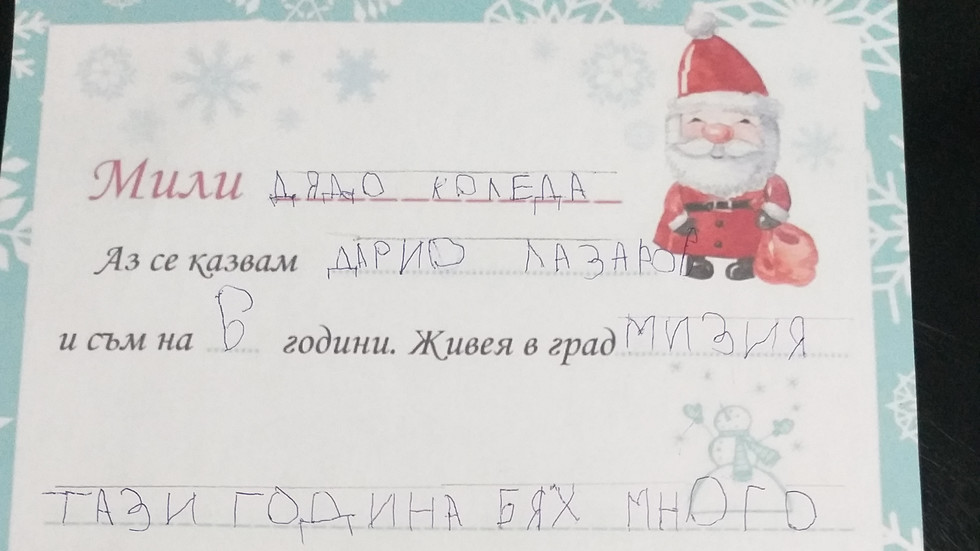 Мили ДЯДО КОЛЕДА
Аз се казвам ДАРИО ЛАЗАРОВ
и съм на 6 години. Живея в град МИЗИЯ
ТАЗИ ГОДИНА БЯХ МНОГО